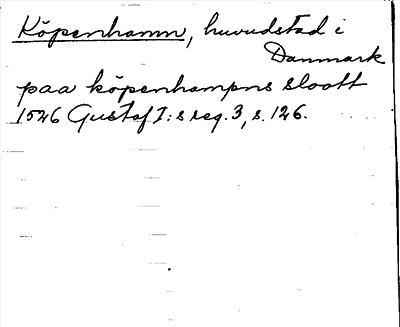 Köpenhamn, huvudstad i
Danmark
paa köpenhampns sloott
1526 Gustaf I:s reg. 3, s. 126.